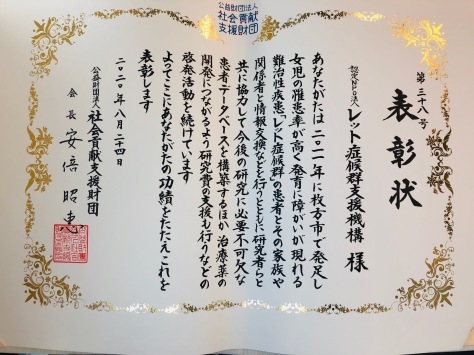 公益財団法人
社会貢献
支援財団
第三十八号
表彰状
認定NPO法人
レット症候群支援機構 様
あなたがたは二〇一一年に枚方市で発足し
女児の罹患率が高く発育に障がいが現れる
難治性疾患「レット症候群」の患者とその家族や
関係者と情報交換などを行うとともに研究者らと
共に協力して今後の研究に必要不可欠な
患者データベースを構築するほか 治療薬の
開発につながるよう研究費の支援も行うなどの
啓発活動を続けています
よってここにあなたがたの功績をたたえこれを
表彰します
二〇二〇年八月二十四日
公益財団法人 社会貢献支援財団
会長 安倍昭恵